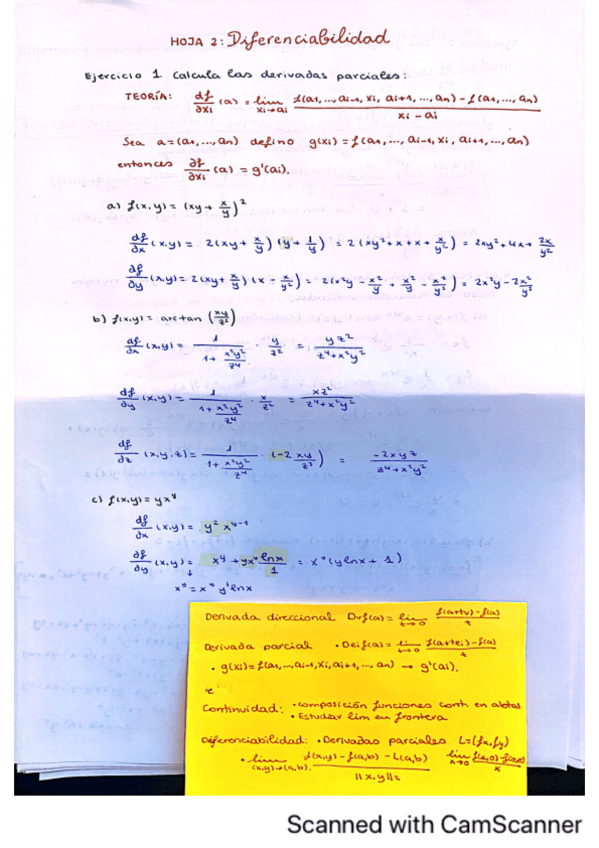 HOJA 2: Diferenciabilidad
Ejercicio 1. Calcula las derivadas parciales:
TEORÍA: df/∂xi (a) = lim xi→ai (f(a1, ..., ai-1, xi, ai+1, ..., an) - f(a1, ..., an)) / (xi - ai)
Sea a = (a1, ..., an) defino g(xi) = f(a1, ..., ai-1, xi, ai+1, ..., an)
entonces ∂f/∂xi (a) = g'(ai).
a) f(x,y) = (xy + x/y)²
df/∂x (x,y) = 2(xy + x/y)(y + 1/y) = 2(xy² + x + x + x/y²) = 2xy² + 4x + 2x/y²
∂f/∂y (x,y) = 2(xy + x/y)(x - x/y²) = 2(x²y - x²/y + x²/y - x²/y³) = 2x²y - 2x²/y³
b) f(x,y) = arctan(xy/z²)
df/∂x (x,y) = 1/(1 + x²y²/z⁴) · y/z² = yz²/(z⁴+x²y²)
df/∂y (x,y) = 1/(1 + x²y²/z⁴) · x/z² = xz²/(z⁴+x²y²)
df/∂z (x,y,z) = 1/(1 + x²y²/z⁴) · (-2 xy/z³) = -2xyz/(z⁴+x²y²)
c) f(x,y) = yx^y
df/∂x (x,y) = y² x^(y-1)
∂f/∂y (x,y) = x^y + yx^y lnx/1 = x^y (y lnx + 1)
↓
x^y = x^y y' lnx
Derivada direccional Dvf(a) = lim t→0 (f(a+tv) - f(a))/t
Derivada parcial • Deif(a) = lim t→0 (f(a+tei) - f(a))/t
• g(xi) = f(a1, ..., ai-1, xi, ai+1, ..., an) → g'(ai).
Continuidad: • composición funciones cont en abtos
• Estudiar lim en frontera
Diferenciabilidad: • Derivadas parciales L=(fx,fy)
• lim (x,y)→(a,b) (f(x,y) - f(a,b) - L(a,b)) / ||x,y||2 lim x→0 (f(x,0) - f(0,0))/x
Scanned with CamScanner